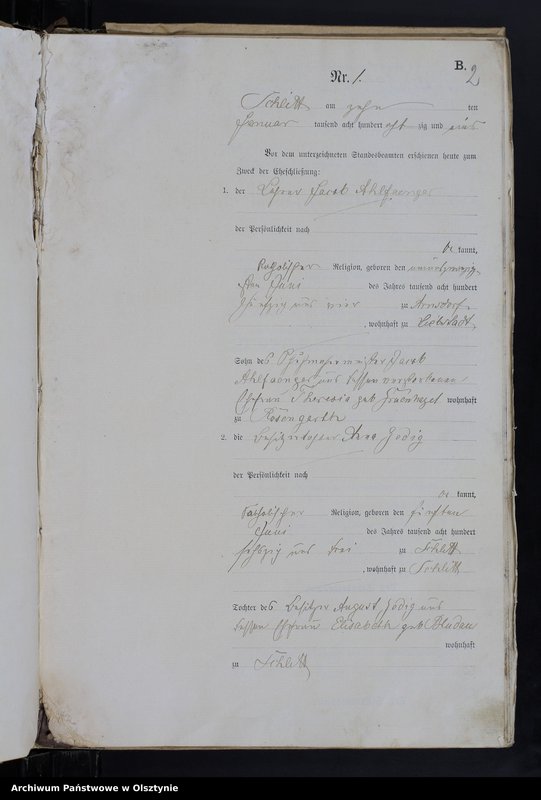 B.
2
Nr. 1.
Schlitt am zehn ten
Januar tausend acht hundert achtzig und eins
Vor dem unterzeichneten Standesbeamten erschienen heute zum
Zweck der Eheschließung:
1. der Lehrer Jacob Ahlfaenger
der Persönlichkeit nach
be kannt,
katholischer Religion, geboren den
sten Juni des Jahres tausend acht hundert
fünfzig und vier zu Arnsdorf
, wohnhaft zu Liebstadt,
Sohn des Schuhmachermeister Jacob
Ahlfaenger und dessen verstorbenen
Ehefrau Theresia geb wohnhaft
zu Rosengarth
2. die Besitzertochter Anna Jodig
der Persönlichkeit nach
be kannt,
katholischer Religion, geboren den fünften
Juni des Jahres tausend acht hundert
sechszig und drei zu Schlitt
, wohnhaft zu Schlitt
Tochter des Besitzer August Jodig und
dessen Ehefrau Elisabeth geb Bludau
wohnhaft
zu Schlitt
Archiwum Państwowe w Olsztynie